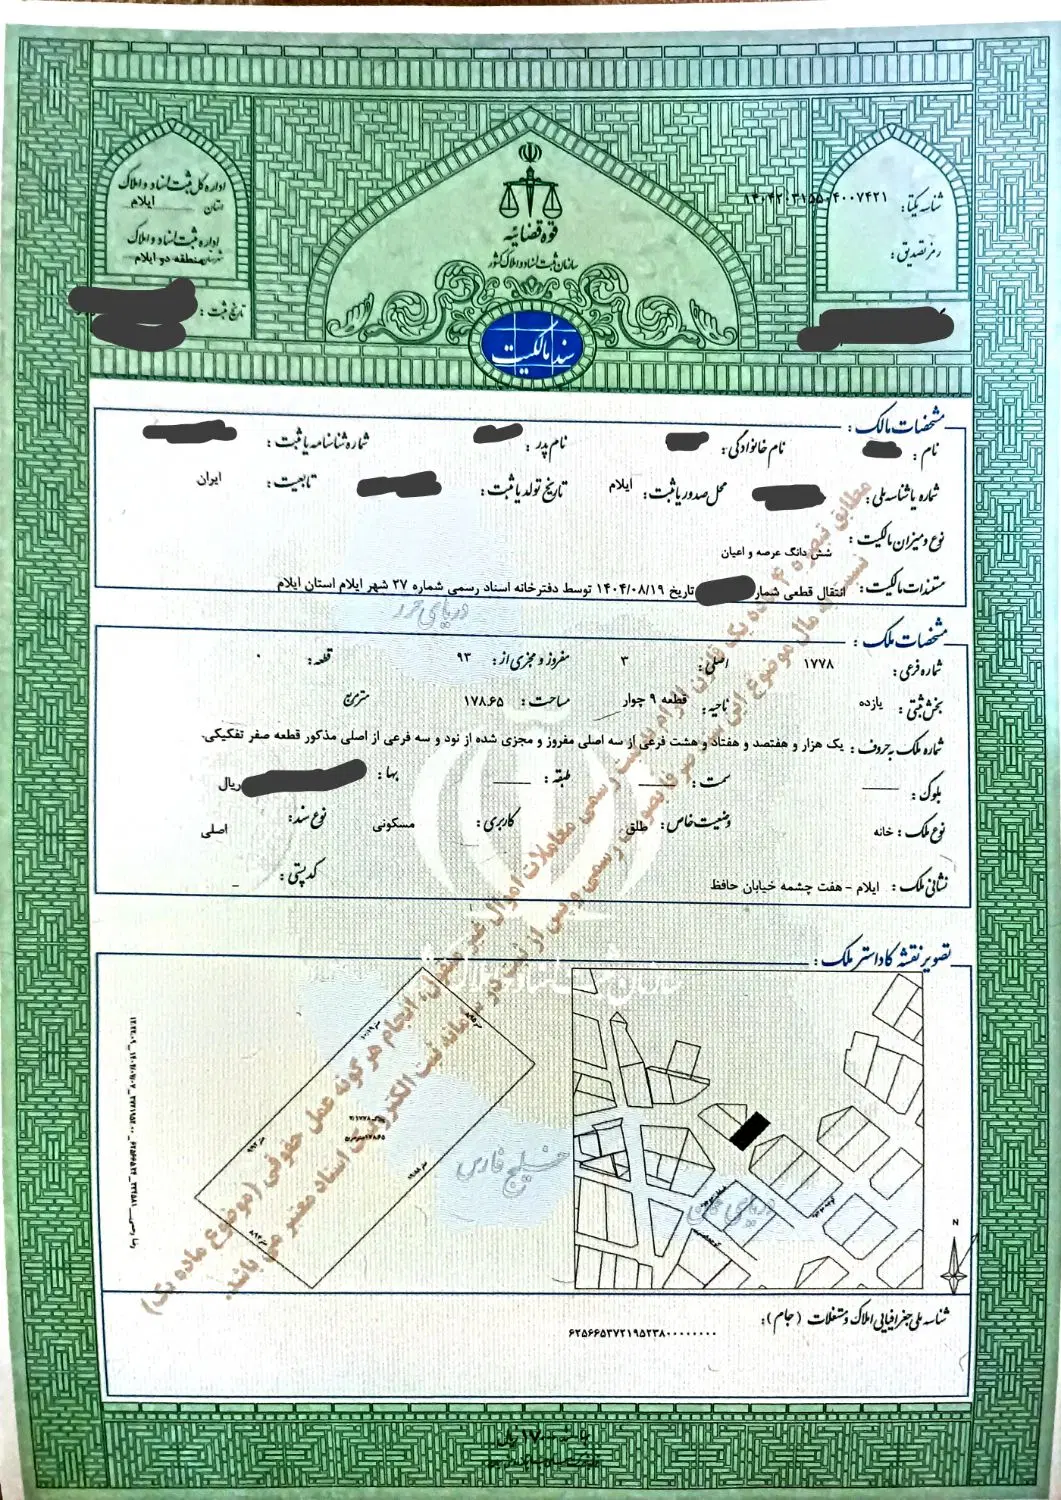 اداره کل ثبت اسناد و املاک
استان ایلام
اداره ثبت اسناد و املاک
منطقه دو ایلام
تاریخ ثبت :
قوه قضائیه
سازمان ثبت اسناد و املاک کشور
سند مالکیت
شناسه یکتا :
رمز تصدیق :
مشخصات مالک :
نام : نام خانوادگی : نام پدر : شماره شناسنامه یا ثبت :
شماره یا شناسه ملی : محل صدور یا ثبت : ایلام تاریخ تولد یا ثبت : تابعیت : ایران
نوع و میزان مالکیت : شش دانگ عرصه و اعیان
مستندات مالکیت : انتقال قطعی شمار تاریخ ۱۴۰۴/۰۸/۱۹ توسط دفترخانه اسناد رسمی شماره ۲۷ شهر ایلام استان ایلام
دریای خزر
مشخصات ملک :
شماره فرعی : ۱۷۷۸ اصلی : ۳ مفروز و مجزی از : ۹۳ قطعه : ۰
بخش ثبتی : یازده ناحیه : قطعه ۹ چوار مساحت : ۱۷۸.۶۵ متر مربع
شماره ملک به حروف : یک هزار و هفتصد و هفتاد و هشت فرعی از سه اصلی مفروز و مجزی شده از نود و سه فرعی از اصلی مذکور قطعه صفر تفکیکی.
بلوک : ــــ سمت : ــــ طبقه : ــــ بها : ریال
نوع ملک : خانه وضعیت خاص : طلق کاربری : مسکونی نوع سند : اصلی
نشانی ملک : ایلام - هفت چشمه خیابان حافظ کد پستی : ـ
مطابق تبصره ۴ ماده یک قانون الزام به ثبت رسمی معاملات اموال غیر منقول، انجام هرگونه عمل حقوقی (موضوع ماده یک)
نسبت به مال موضوع این سند صرفا بصورت رسمی و پس از ثبت در سامانه ثبت الکترونیک اسناد معتبر می باشد.
تصویر نقشه کاداستر ملک :
خلیج فارس
N
شناسه ملی جغرافیایی املاک و مستغلات (جام) :
۶۲۵۶۶۵۳۷۲۱۹۵۲۳۸۰۰۰۰۰۰۰۰